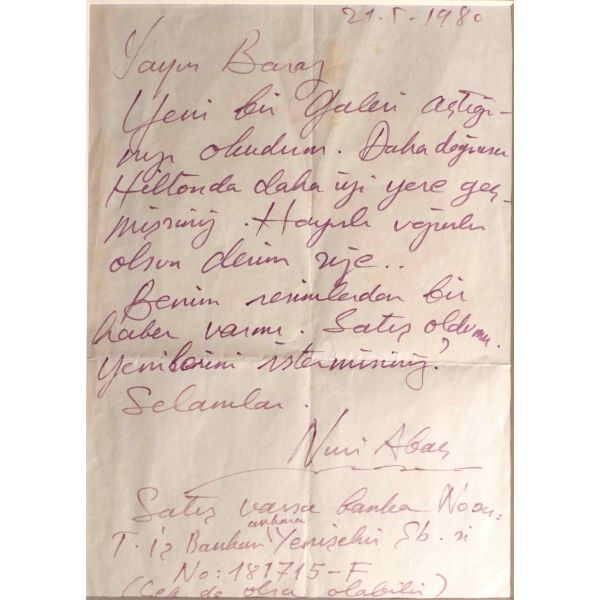 21.5.1980
Sayın Baraz
Yeni bir Galeri açtığı-
nızı okudum. Daha doğrusu
Hiltonda daha iyi yere geç-
mişsiniz. Hayırlı uğurlu
olsun derim size..
Benim resimlerden bir
haber varmı. Satış oldumu.
Yenilerini istermisiniz?
Selamlar.
Nuri Abaç
Satış varsa banka No.su:
T. İş Bankası ankara Yenişehir Şb. si
No: 181715-F
(Çek de olsa olabilir)